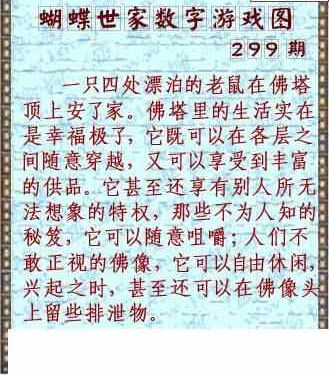 蝴蝶世家数字游戏图
299期
一只四处漂泊的老鼠在佛塔
顶上安了家。佛塔里的生活实在
是幸福极了,它既可以在各层之
间随意穿越,又可以享受到丰富
的供品。它甚至还享有别人所无
法想象的特权,那些不为人知的
秘笈,它可以随意咀嚼;人们不
敢正视的佛像,它可以自由休闲,
兴起之时,甚至还可以在佛像头
上留些排泄物。